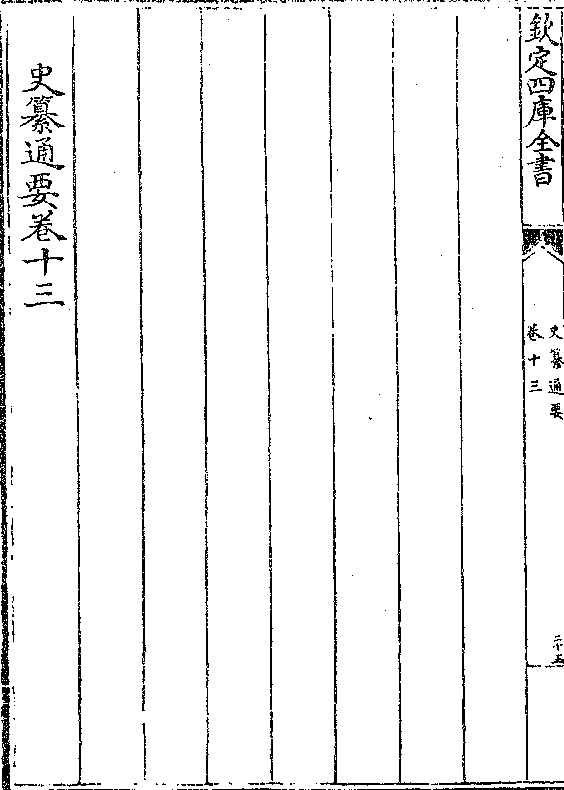 欽定四庫全書
史纂通要
卷十三
二十五
史纂通要卷十三